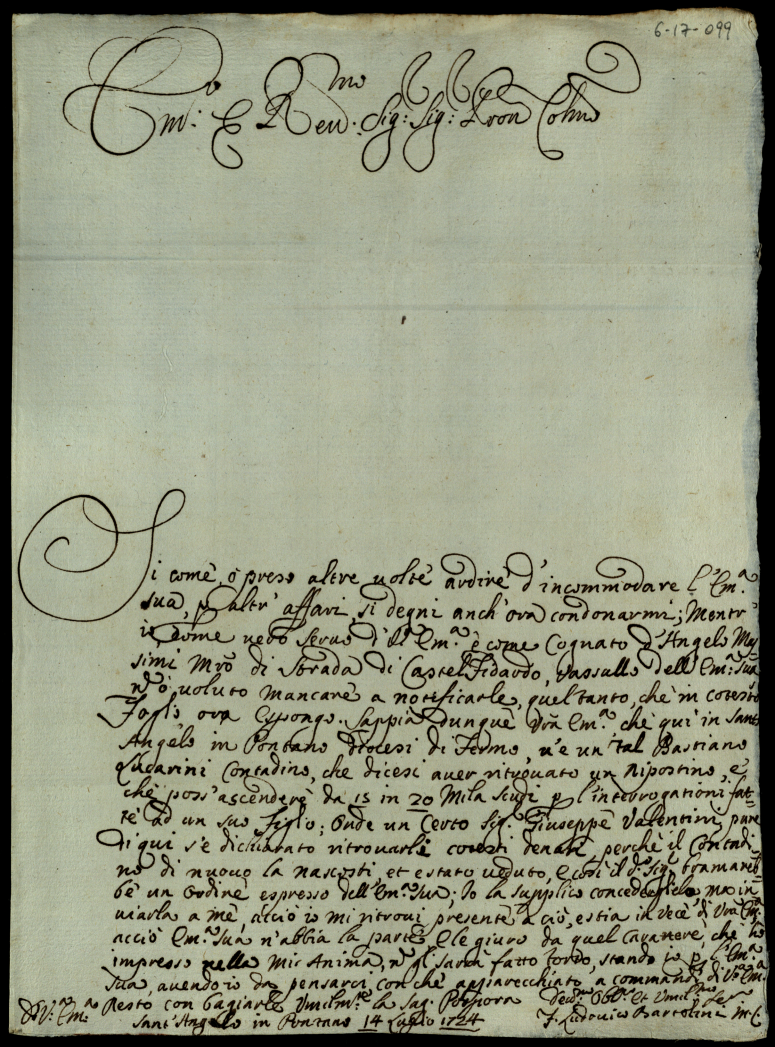 6-17-099
Em.o E Reu.mo Sig: Sig: Pron Colmo
Si come, ò preso altre uolte ardire d'incommodare l'Em.a
sua, p altr' affari, si degni anch'ora condonarmi; Mentr'
io, come uero seruo d'V.a Em.a è come Cognato d'Angelo Mas
simi Mro di Strada di Castel Fidardo, Vassallo dell'Em.a Sua
nò ò uoluto mancare a notificarle, quel tanto, chè in cotesto
Foglio ora Espongo. Sappia dunque Vra Em.a, chè qui in Sant'
Angelo in Pontano Diocesi di Fermo, u'è un tal Bastiano
Lucarini Contadino, che dicesi auer ritrouato un Ripostino, e
chè poss'ascendere da 15 in 20 Mila Scudi p l'interrogationi fat-
te ad un suo figlio; Onde un Certo Sig. Giuseppe Valentini pure
di qui s'è dichiarato ritrouarli cotesti denari, perchè il Contadi
no di nuouo la nascosti, et è stato ueduto, e così il d.o Sig. bramareb-
be un Ordine espresso dell'Em.a Sua; Io la supplico concederglielo, ma in
uiarlo a mè, acciò io mi ritroui presente a ciò, e stia in uece di Vra Em.a
acciò Em.a Sua n'abbia la parte, E le giuro da quel Carattere, che hò
impresso nella Mia Anima, nò gli sarrà fatto torto, stando io p l'Em.a
Sua, auendo io da pensarci, con chè apparecchiato a commandi di V.a Em.a
Resto con bagiarle Umilm.te la Sag. Porpora
D V.a Em.a Deu.mo Obb.mo et Umil.mo Ser.e
Sant'Angelo in Pontano 14 Luglio 1724 F. Ludouico Bartolini M.C.